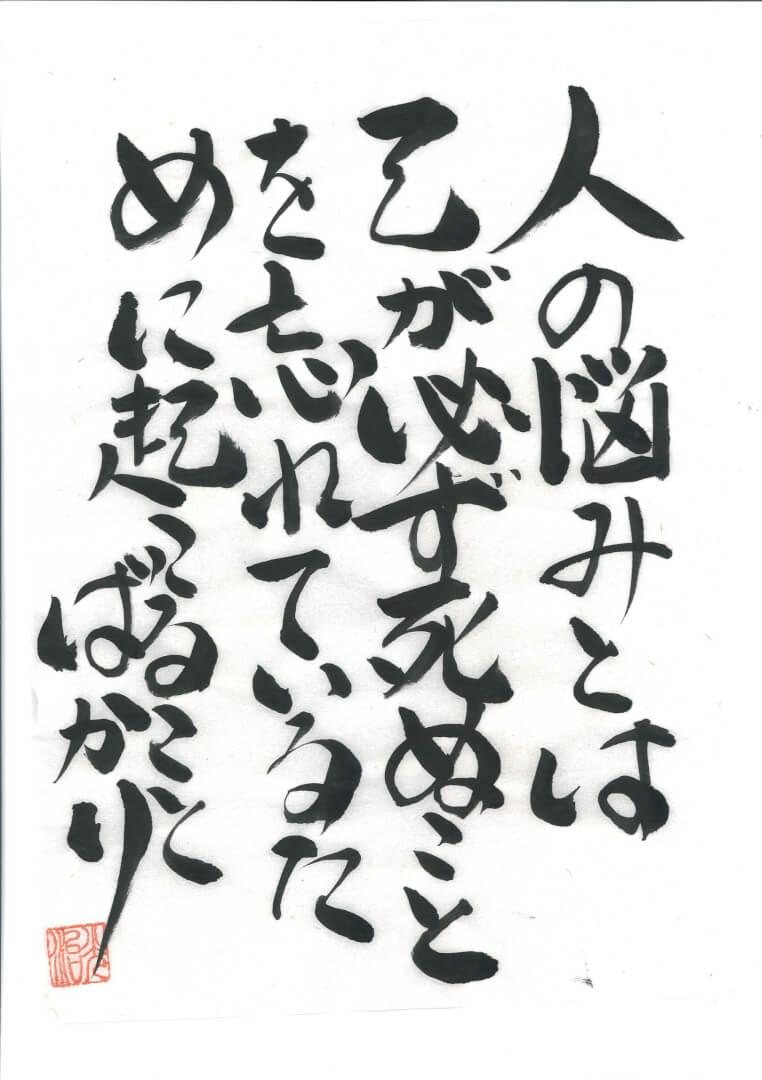 人の悩みとは
己が必ず死ぬこと
を忘れているた
めに起こること
ばかり